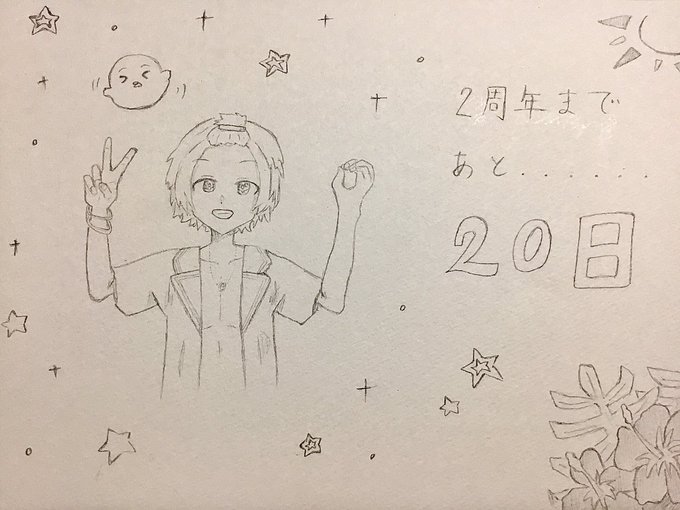 2周年まで
あと.......
20日